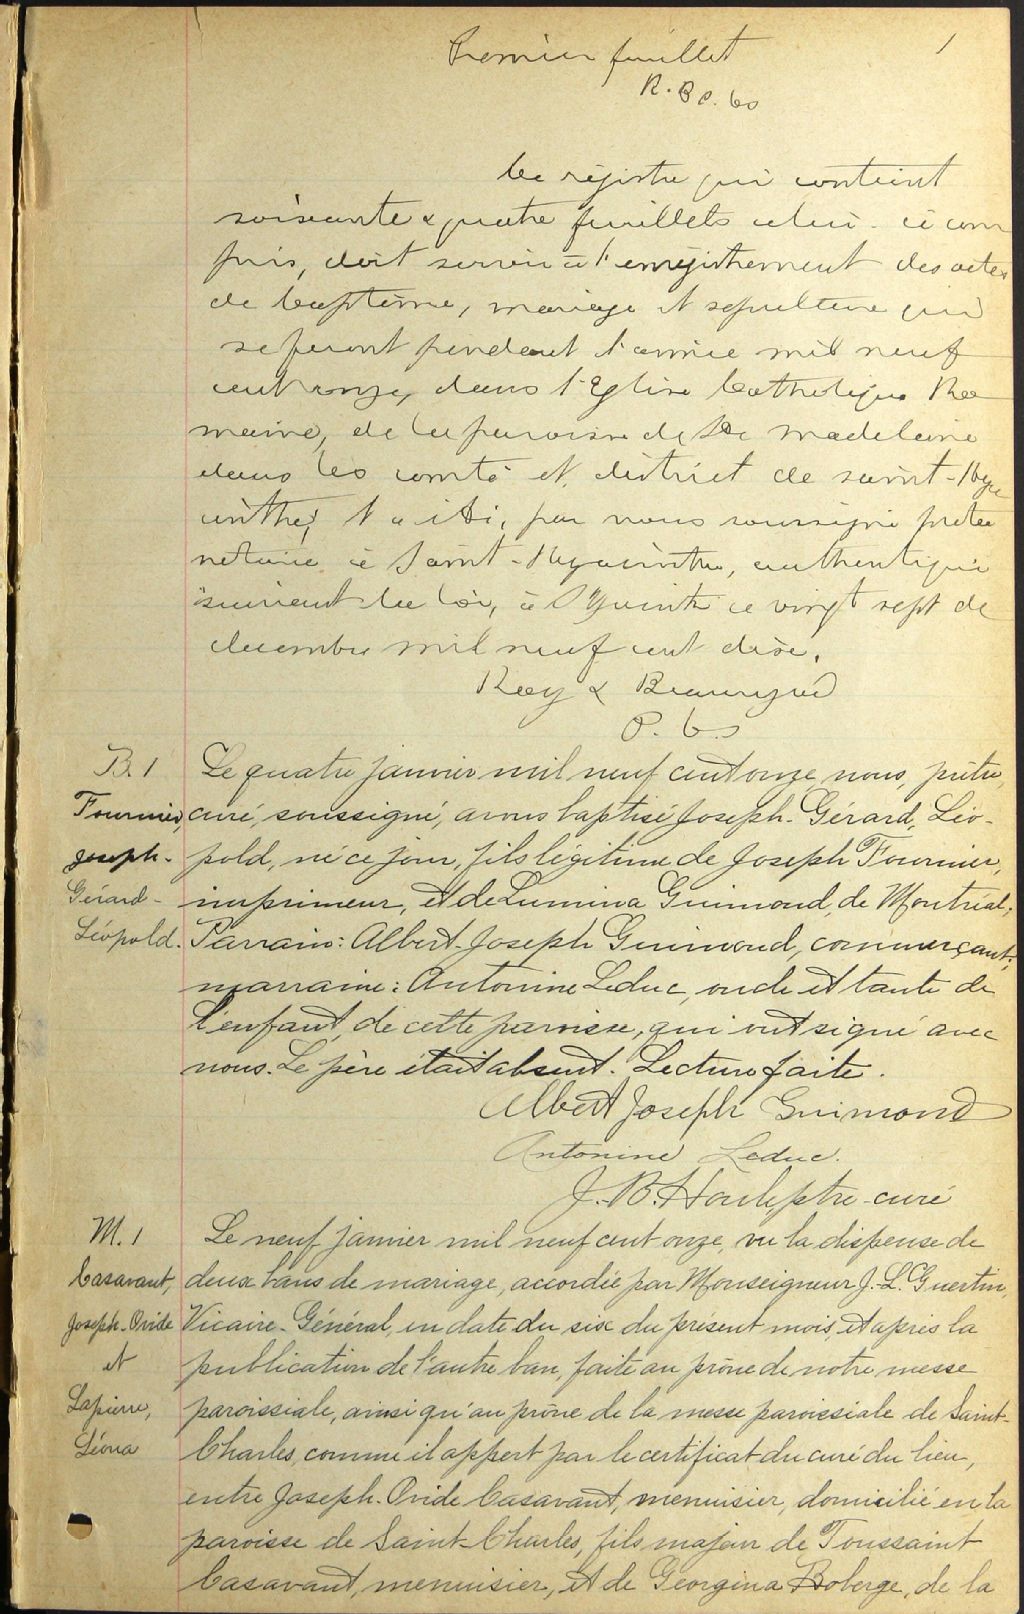 Premier feuillet
1
R. & B P. Cs
Ce régistre qui contient
soixante & quatre feuillets celui-ci com
pris, doit servir à l'enregistrement des actes
de baptême, mariage et sépulture qui
se feront pendant l'année mil neuf
cent onze, dans l'Eglise Catholique Ro
maine, de la paroisse de Ste madeleine
dans les comté et district de saint-Hya
cinthe, l a été, par nous soussigné proto
notaire à Saint-Hyacinthe, authentiqué
suivant la loi, à St Hyacinthe ce vingt sept de
decembre mil neuf cent dix.
Roy & Beauregard
P. C. S
B. 1
Fournier,
Joseph-
Gérard-
Léopold.
Le quatre janvier mil neuf cent onze, nous, prêtre,
curé, soussigné, avons baptisé Joseph-Gérard, Léo-
pold, né ce jour, fils légitime de Joseph Fournier,
imprimeur, et de Lumina Guimond, de Montréal;
Parrain: Albert-Joseph Guimond, commerçant;
marraine: Antonine Leduc, oncle et tante de
l'enfant, de cette paroisse, qui ont signé avec
nous. Le père était absent. Lecture faite.
Albert Joseph Guimond
Antonine Leduc.
J. B. Houle, ptre-curé
M. 1
Casavant,
Joseph-Ovide
et
Lapierre,
Léona
Le neuf janvier mil neuf cent onze, vu la dispense de
deux bans de mariage, accordée par Monseigneur J. L. Guertin,
Vicaire-Général, en date du six du présent mois, et après la
publication de l'autre ban, faite au prône de notre messe
paroissiale, ainsi qu'au prône de la messe paroissiale de Saint-
Charles, comme il appert par le certificat du curé du lieu,
entre Joseph-Ovide Casavant, menuisier, domicilié en la
paroisse de Saint-Charles, fils majeur de Toussaint
Casavant, menuisier, et de Georgina Boberge, de la